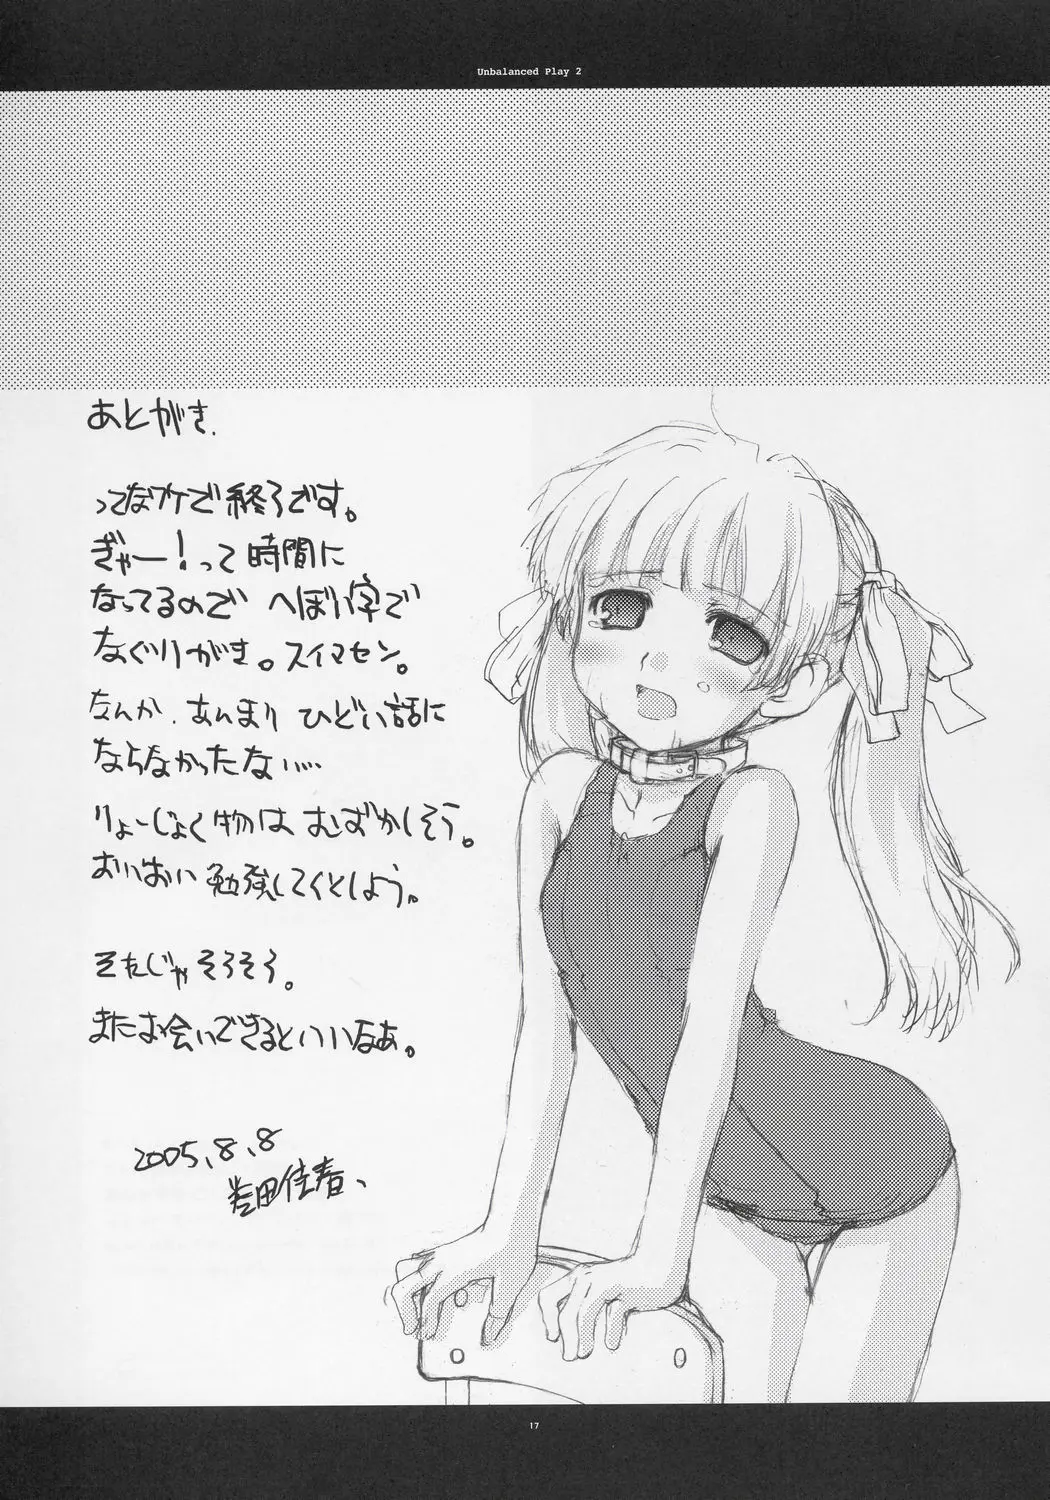 Unbalanced Play 2
あとがき.
ってなワケで終了です。
ぎゃー！って時間に
なってるので へぼい字で
なぐりがき。スイマセン。
なんか、あんまり ひどい話に
ならなかったない…
りょーじょく物は むずかしそう。
おいおい 勉強してくとしよう。
そんじゃそろそろ。
またお会いできるといいなあ。
2005.8.8
17